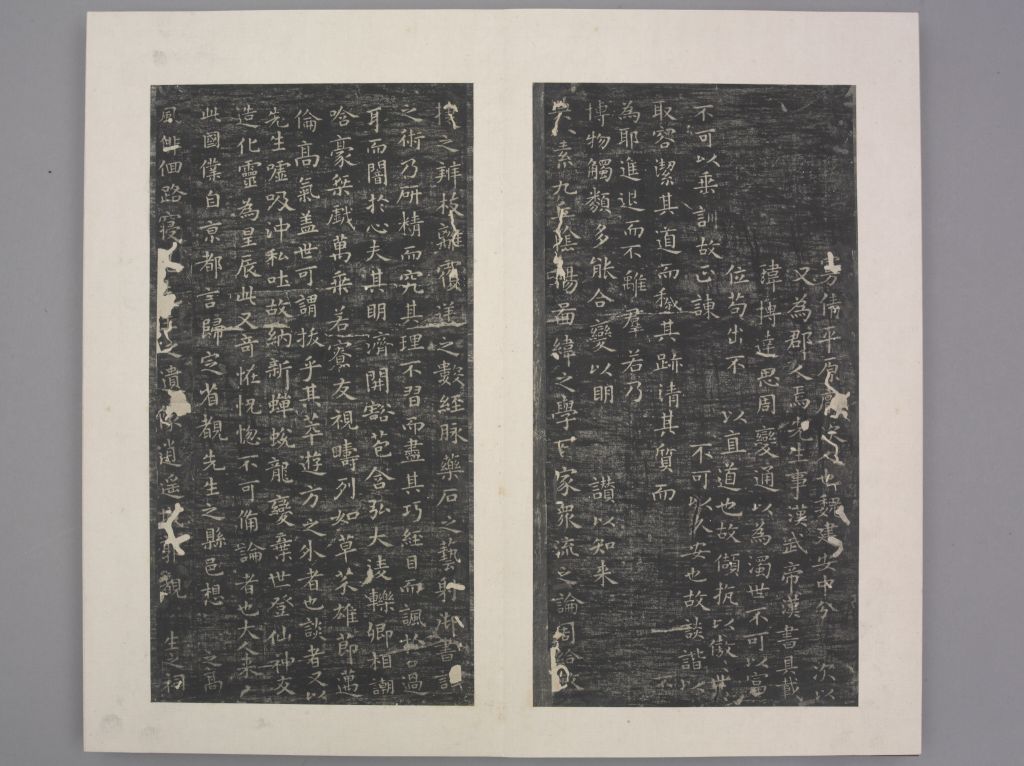 方倩平原厭次人也魏建安中分 次以
又為郡人焉先生事漢武帝漢書具載
瑋博達思周變通以為濁世不可以富
位苟出不 以直道也故頡抗以傲世
不可以垂訓故正諫 不可以久安也故談諧以
取容潔其道而穢其跡清其質而
為耶進退而不離群若乃
博物觸類多能合變以明 讃以知来
素九 陰陽圖緯之學百家眾流之論周給敏
捷之辨枝離覆逆之數經脉藥石之藝射御書計
之術乃研精而究其理不習而盡其巧經目而諷於口過
耳而闇於心夫其明濟開豁苞含弘大陵轢卿相謿
哈豪桀戲萬乘若寮友視疇列如草芥雄節邁
倫高氣盖世可謂拔乎其萃遊方之外者也談者又以
先生噓吸沖和吐故納新蟬蛻龍變棄世登仙神友
造化靈為星辰此又奇恠恍惚不可備論者也大人来
此國僕自京都言歸定省覩先生之縣邑想 之高
風徘徊路寝 之遺像逍遥 觀 生之祠